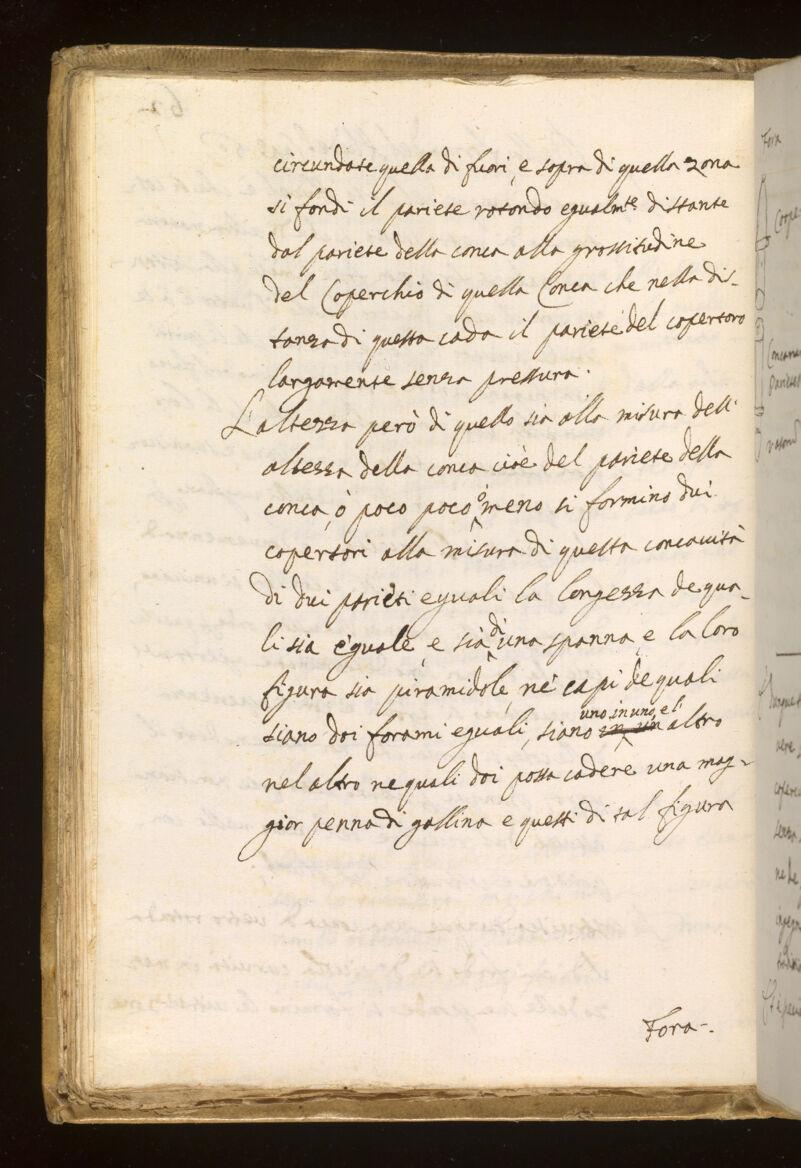 circundate quella di fuori, e sopra di quella zona
si fondi il pariete rotondo egualmte distante
dal pariete della conca alla grossitudine
del Coperchio di quella Conca che nella dis-
tanza di questa cada il pariete del copertoro
largamente senza pressura.
L'altezza però di quello sia alla misura dell'
altezza della conca cioè del pariete della
conca, ò poco poco ò meno si formino dui
copertori alla misura di questa concavità
di dui parieti eguali la longezza de qua-
li sia eguale, e sia di una spanna, e la loro
figura sia piramidole, ne' capi de quali
siano doi forami eguali, siano uno in uno, e l' altro
nel altro ne quali doi possa cadere una mag-
gior penna di gallina e questi di tal figura
Fora-.
Fora